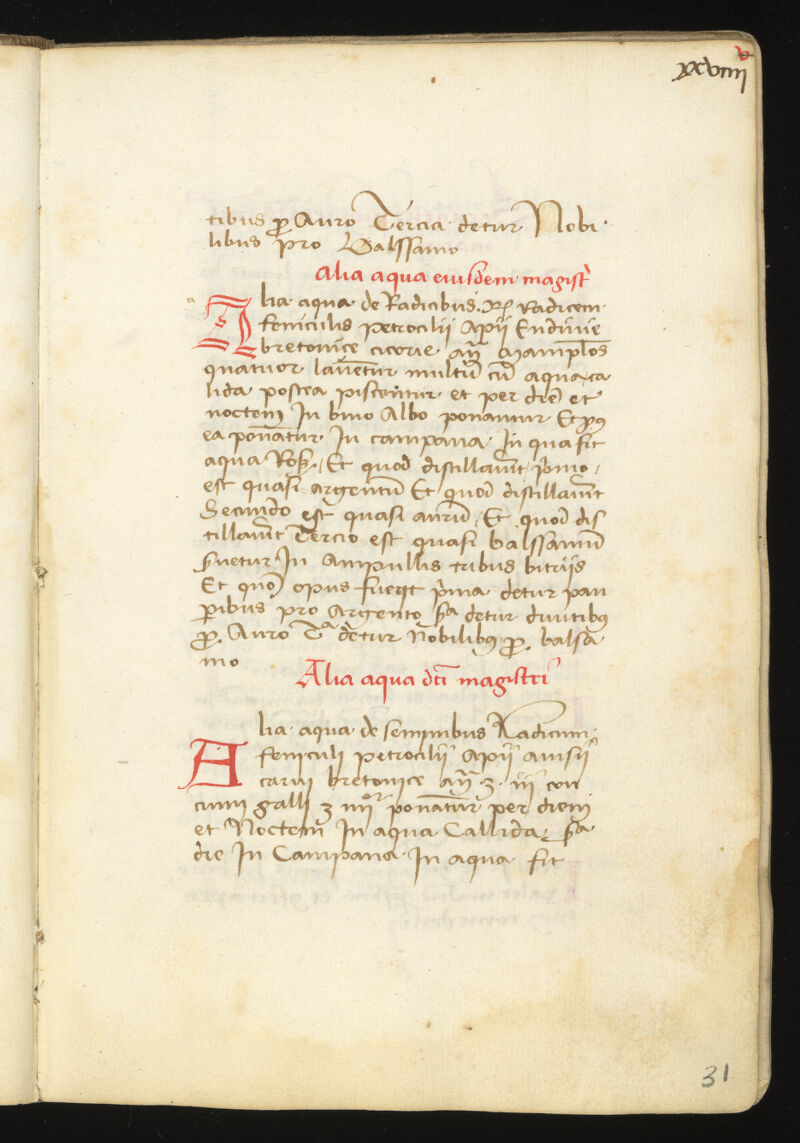 v
xxviiii
tibus p̱ Auro Tercia detur Nobi
libus pro Balssamo
Alia aqua eiusdem magistri
a
Alia aqua de Radicibus. Rx radicem
feniculis petrocilij Apij Endivie
bretonice cicorie añ Mamplos
quatuor laventur multũ cũ aqua ca
lida postea piscentur et per diẽ et
noctem In bino Albo ponantur Et
ea ponãtur In campana In qua fit
aqua Ros. Et quod distillaverit p'mo
est quasi argentũ Et quod distillaverit
Secundo est quasi aurũ, Et quod dis
tillaverit Tercio est quasi balssamũ
s'uetur In Ampullis tribus bitrijs
Et quõ opus fuerit p'ma detur pau
peribus pro Argento s'a detur divitibus
p̱. Auro Tª detur Nobilibus p̱. balsa
mo
Alia aqua dc̃ti magistri
Alia aqua de seminibus Radicum
feniculi petrocilij Apij Anisij
carui bretonice añ ʒ. iij con
cum galli ʒ iiijor ponãtur per diem
et Noctem In aqua Callida, s'a
die In Campana In aqua fit
31